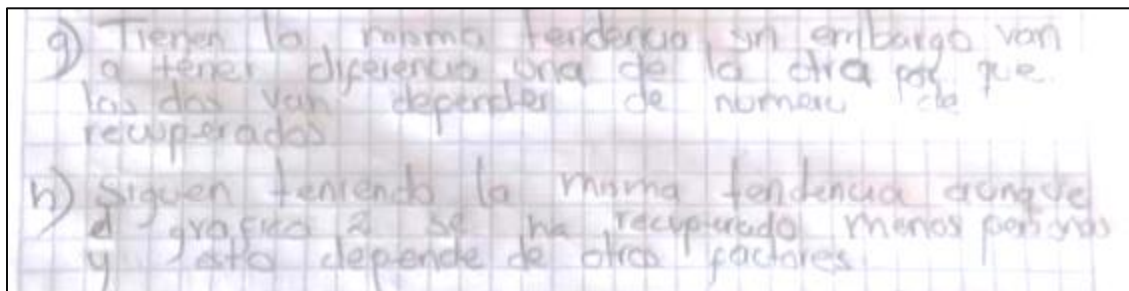 g) Tienen la misma tendencia sin embargo van
a tener diferencia una de la otra por que
las dos van depender de numero de
recuperados
h) Siguen teniendo la misma tendencia aunque
el grafico 2 se ha recuperado menos personas
y esto depende de otros factores